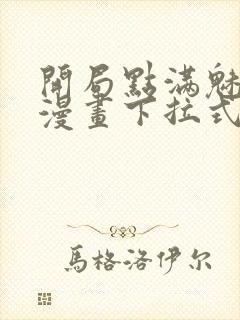 開局點滿魅
漫畫下拉式
馬格洛伊尔